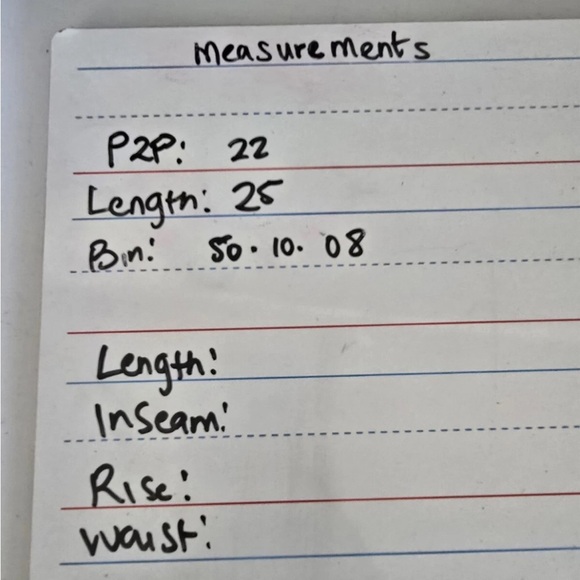 Measurements
P2P: 22
Length: 25
Bin: 50.10.08
Length:
InSeam:
Rise:
Waist: